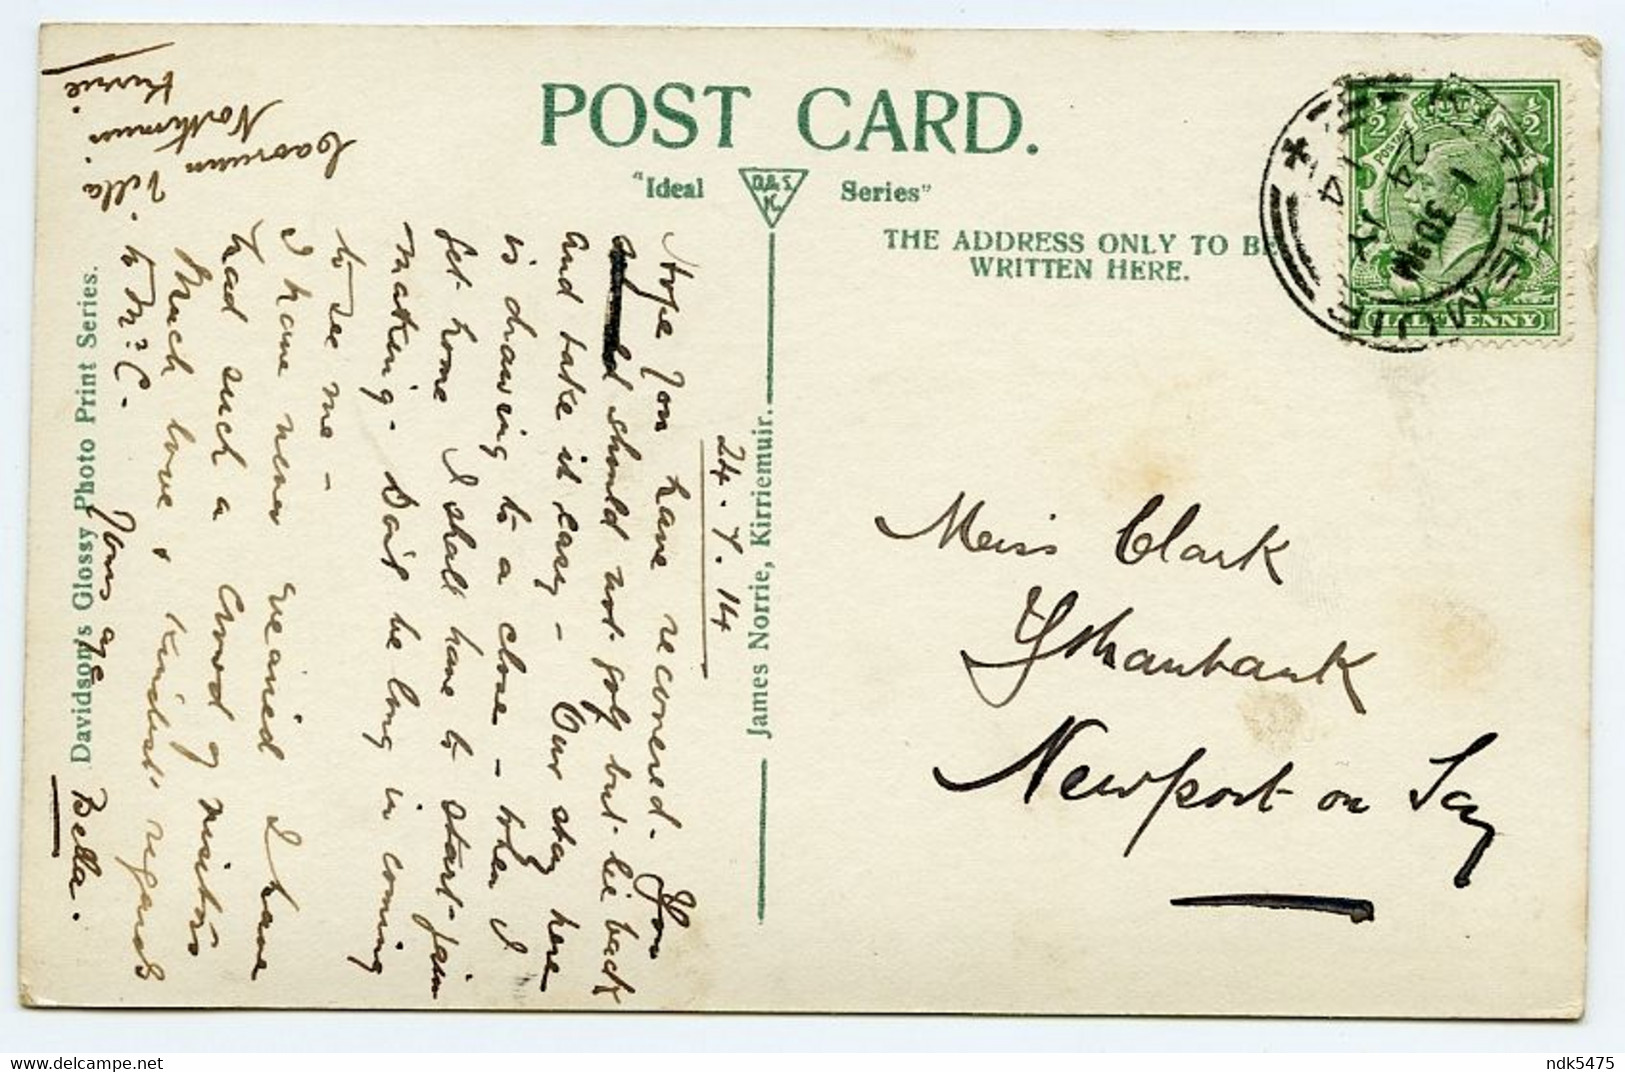 POST CARD.
"Ideal D.&S. K. Series"
THE ADDRESS ONLY TO BE
WRITTEN HERE.
KIRRIEMUIR
1 30 PM
24 JY
14
HALFPENNY
Miss Clark
Newport on Tay
James Norrie, Kirriemuir.
24.7.14
Hope You have recovered. You
should not golf but lie back
and take it easy - Our stay here
is drawing to a close - When I
get home I shall have to start jam
making. Don't be long in coming
to see me -
I have never I have
had such a crowd of visitors
Much love & kindest regards
to Mr C.
Yours aye
Bella.
Villa
Northmuir.
Kirrie.
Davidson's Glossy Photo Print Series.
ndk5475